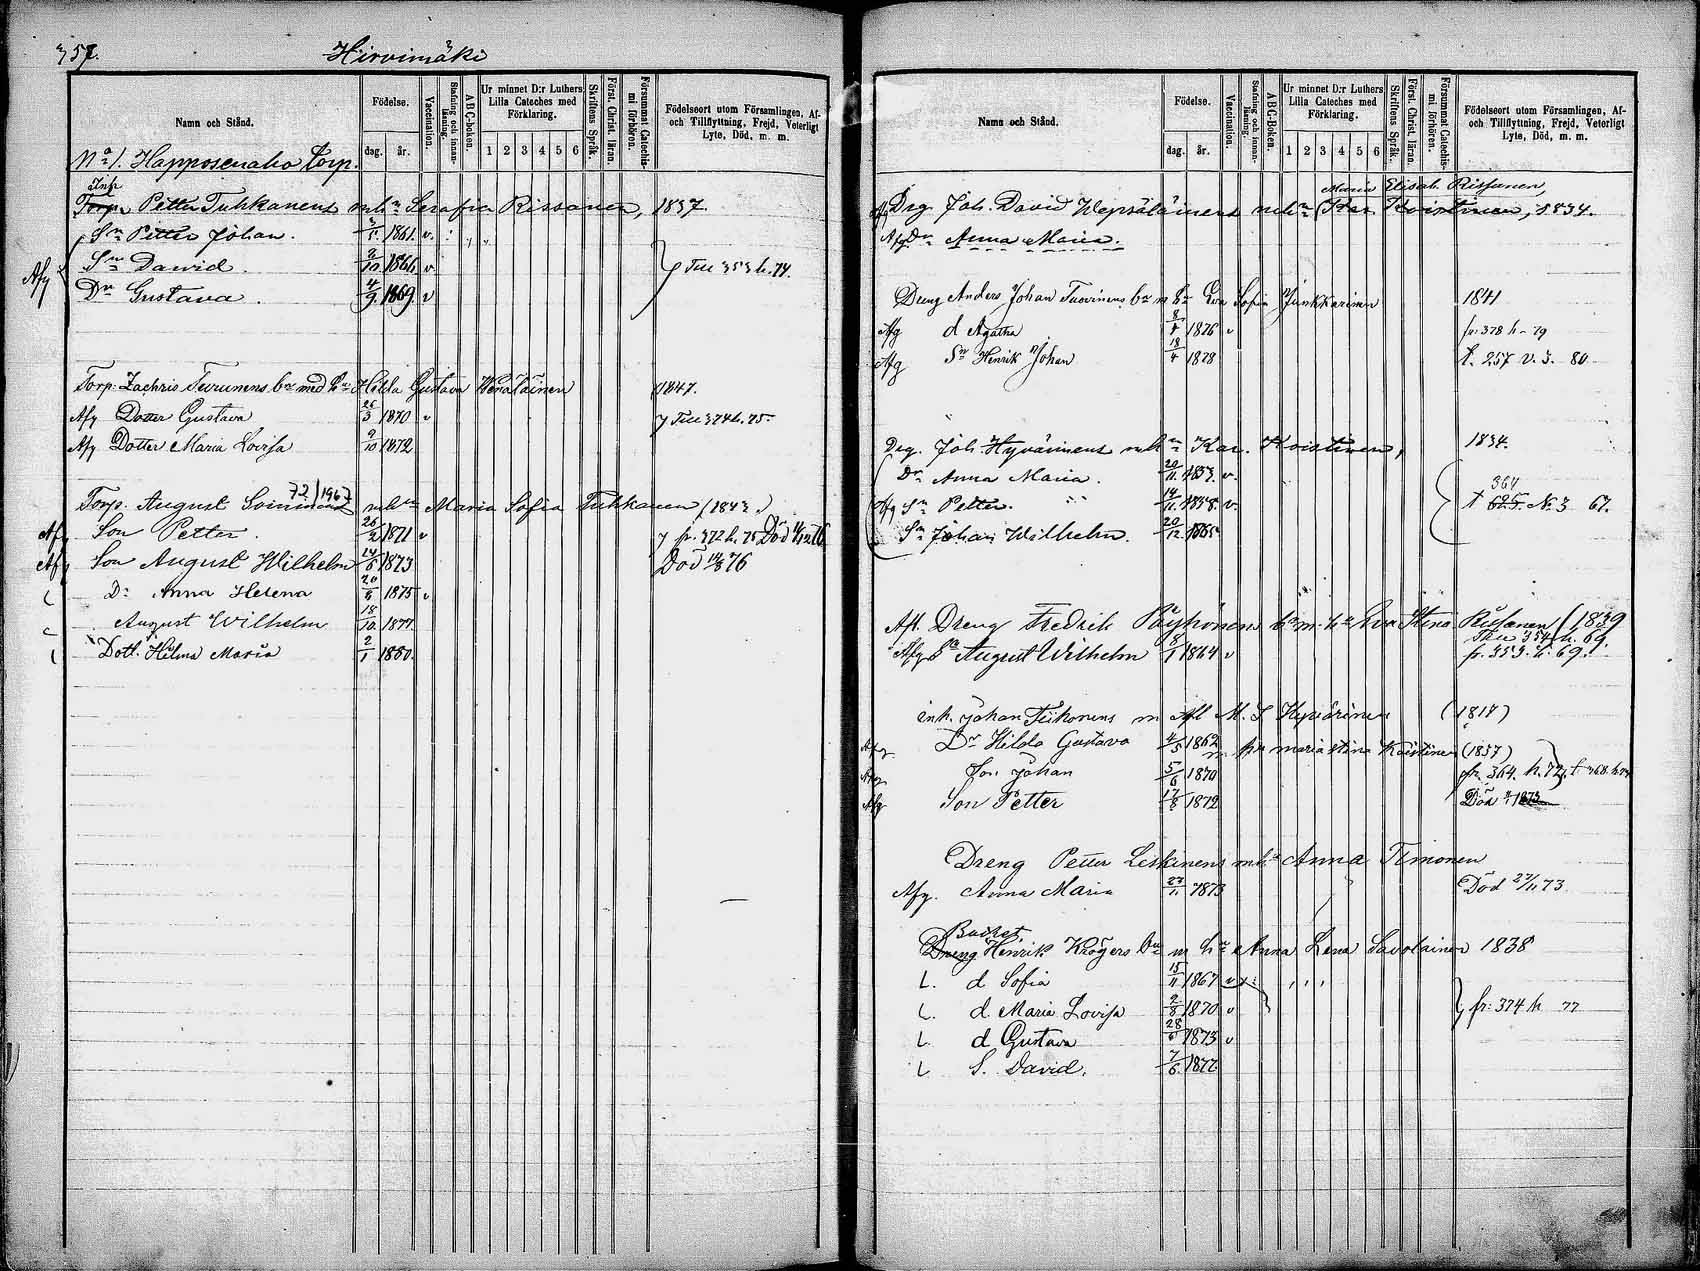 357.
Hirvimäki
Namn och Stånd.
Födelse.
dag. år.
Vaccination.
Stafning och innanläsning.
ABC-boken.
Ur minnet D:r Luthers Lilla Cateches med Förklaring.
1 2 3 4 5 6
Skriftens Språk.
Först. Christ. läran.
Försummat Catechismi förhören.
Födelseort utom Församlingen, Af- och Tillflyttning, Frejd, Veterligt Lyte, Död, m. m.
No 1. Happosenaho Torp.
Inh
Torp. Petter Tuhkanens m hn Serafia Rissanen, 1837.
Sn Petter Johan. 1861. v.
Afg Sn Dawid. 2/10 1866 v Till 353 h. 74.
Dr Gustava. 4/9 1869 v
Torp: Zachris Teirunens br med hu Hilda Gustava Wenäläinen (1847.
Afg Dotter Gustava 26/3 1870 v Till 374 h. 75.
Afg Dotter Maria Lovisa 9/10 1872
Torp. August Soininens m hn Maria Sofia Tuhkanen
Afg Son Petter. 26/2 1871 v fr. 372 h. 75 Död
Afg Son August Wilhelm 24/6 1873 Död 76
Dr Anna Helena 20/8 1875 v
August Wilhelm 18/10 1877
Dott. Hilma Maria 2/1 1880.
Namn och Stånd.
Födelse.
dag. år.
Vaccination.
Stafning och innanläsning.
ABC-boken.
Ur minnet D:r Luthers Lilla Cateches med Förklaring.
1 2 3 4 5 6
Skriftens Språk.
Först. Christ. läran.
Försummat Catechismi förhören.
Födelseort utom Församlingen, Af- och Tillflyttning, Frejd, Veterligt Lyte, Död, m. m.
Maria Elisab. Rissanen,
Afg Drg Joh. David Wepsäläinens m hn Kar. Koistinen, 1834.
Afg Dr Anna Maria.
Dreng Anders Johan Tuovinens br m hu Eva Sofia Junkkarinen 1841
Afg d Agatha 8/4 1876 v fr. 378 h. 79
Afg Sn Henrik Johan 18/4 1878 t. 257 v. 3. 80
Drg. Joh. Hyvärinens m hn Kar. Koistinen, 1834.
Dr Anna Maria. 20/11 1857. v.
364
Afg Sn Petter. 14/11 1858. v. t 625. No 3 67.
Sn Johan Wilhelm. 20/12 1865
Afl. Dreng Fredrik Pöyhönen br m. hu Eva Stina Rissanen (1839
Till 354 h. 69
Afg Sn August Wilhelm 8/1 1864 v fr. 353. h. 69.
inh. Johan Tiihonens m Afl M. S Hyvärinen (1814)
Afg Dr Hilda Gustava 4/5 1862 m hu maria stina Koistinen (1837)
Afg Son Johan 5/6 1870 fr. 364. h. 72, t 368. h.
Afg Son Petter 17/8 1872 Död 1873
Dreng Petter Leskinens m hu Anna Timonen
Afg. Anna Maria 23/11 1873 Död 27/11 73
Backst.
Dreng Henrik Krögers br m hu Anna Lena Savolainen 1838
L. d Sofia 15/11 1867 v
L. d. Maria Lovisa 2/8 1870 v fr: 374 h 77
L. d Gustava 28/6 1873 v
L S. David. 7/6. 1877